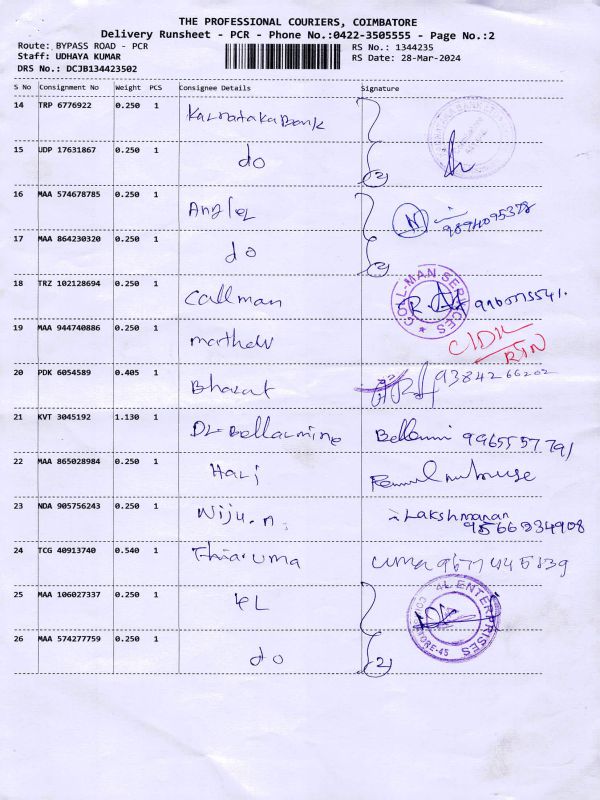 THE PROFESSIONAL COURIERS, COIMBATORE
Delivery Runsheet - PCR - Phone No.:0422-3505555 - Page No.:2
Route: BYPASS ROAD - PCR
RS No.: 1344235
Staff: UDHAYA KUMAR
RS Date: 28-Mar-2024
DRS No.: DCJB134423502
S No Consignment No Weight PCS Consignee Details Signature
14 TRP 6776922 0.250 1 Karnataka Bank
15 UDP 17631867 0.250 1 do (2)
16 MAA 574678785 0.250 1 Angler N 9894095378
17 MAA 864230320 0.250 1 do (2)
18 TRZ 102128694 0.250 1 Callman CALL-MAN SERVICES
19 MAA 944740886 0.250 1 RTN
20 PDK 6054589 0.405 1 Bharat 9384266202
21 KVT 3045192 1.130 1 Dr Bellarmine 9965557791
22 MAA 865028984 0.250 1 Hari
23 NDA 905756243 0.250 1 Niju.n. Lakshmanan 9566234908
24 TCG 40913740 0.540 1 uma 9677445839
25 MAA 106027337 0.250 1 4L 4L ENTERPRISES
26 MAA 574277759 0.250 1 do (2)